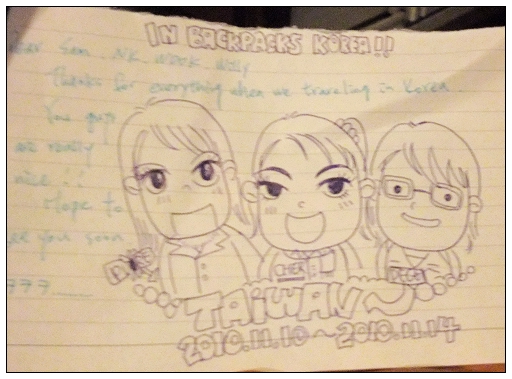 IN BACKPACKS KOREA!!
Thanks for everything when we traveling in Korea
You guys
are really
nice !!
Hope to
see you soon
TAIWAN
2010.11.10~2010.11.14